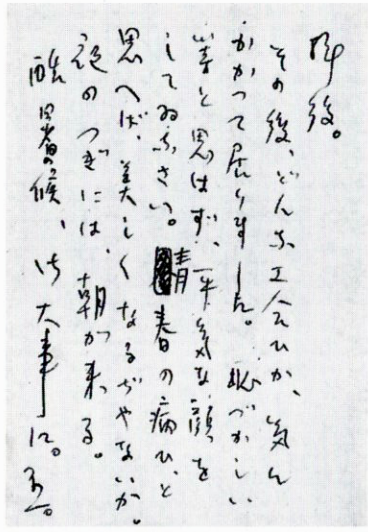 拝復。
その後、どんな工合ひか、気に
かかつて居りました。恥づかしい
事と思はず、平気な顔を
してゐなさい。青春の病ひ、と
思へば、美しくなるぢやないか。
夜のつぎには、朝が来る。
酷暑の候、御大事に。不一。